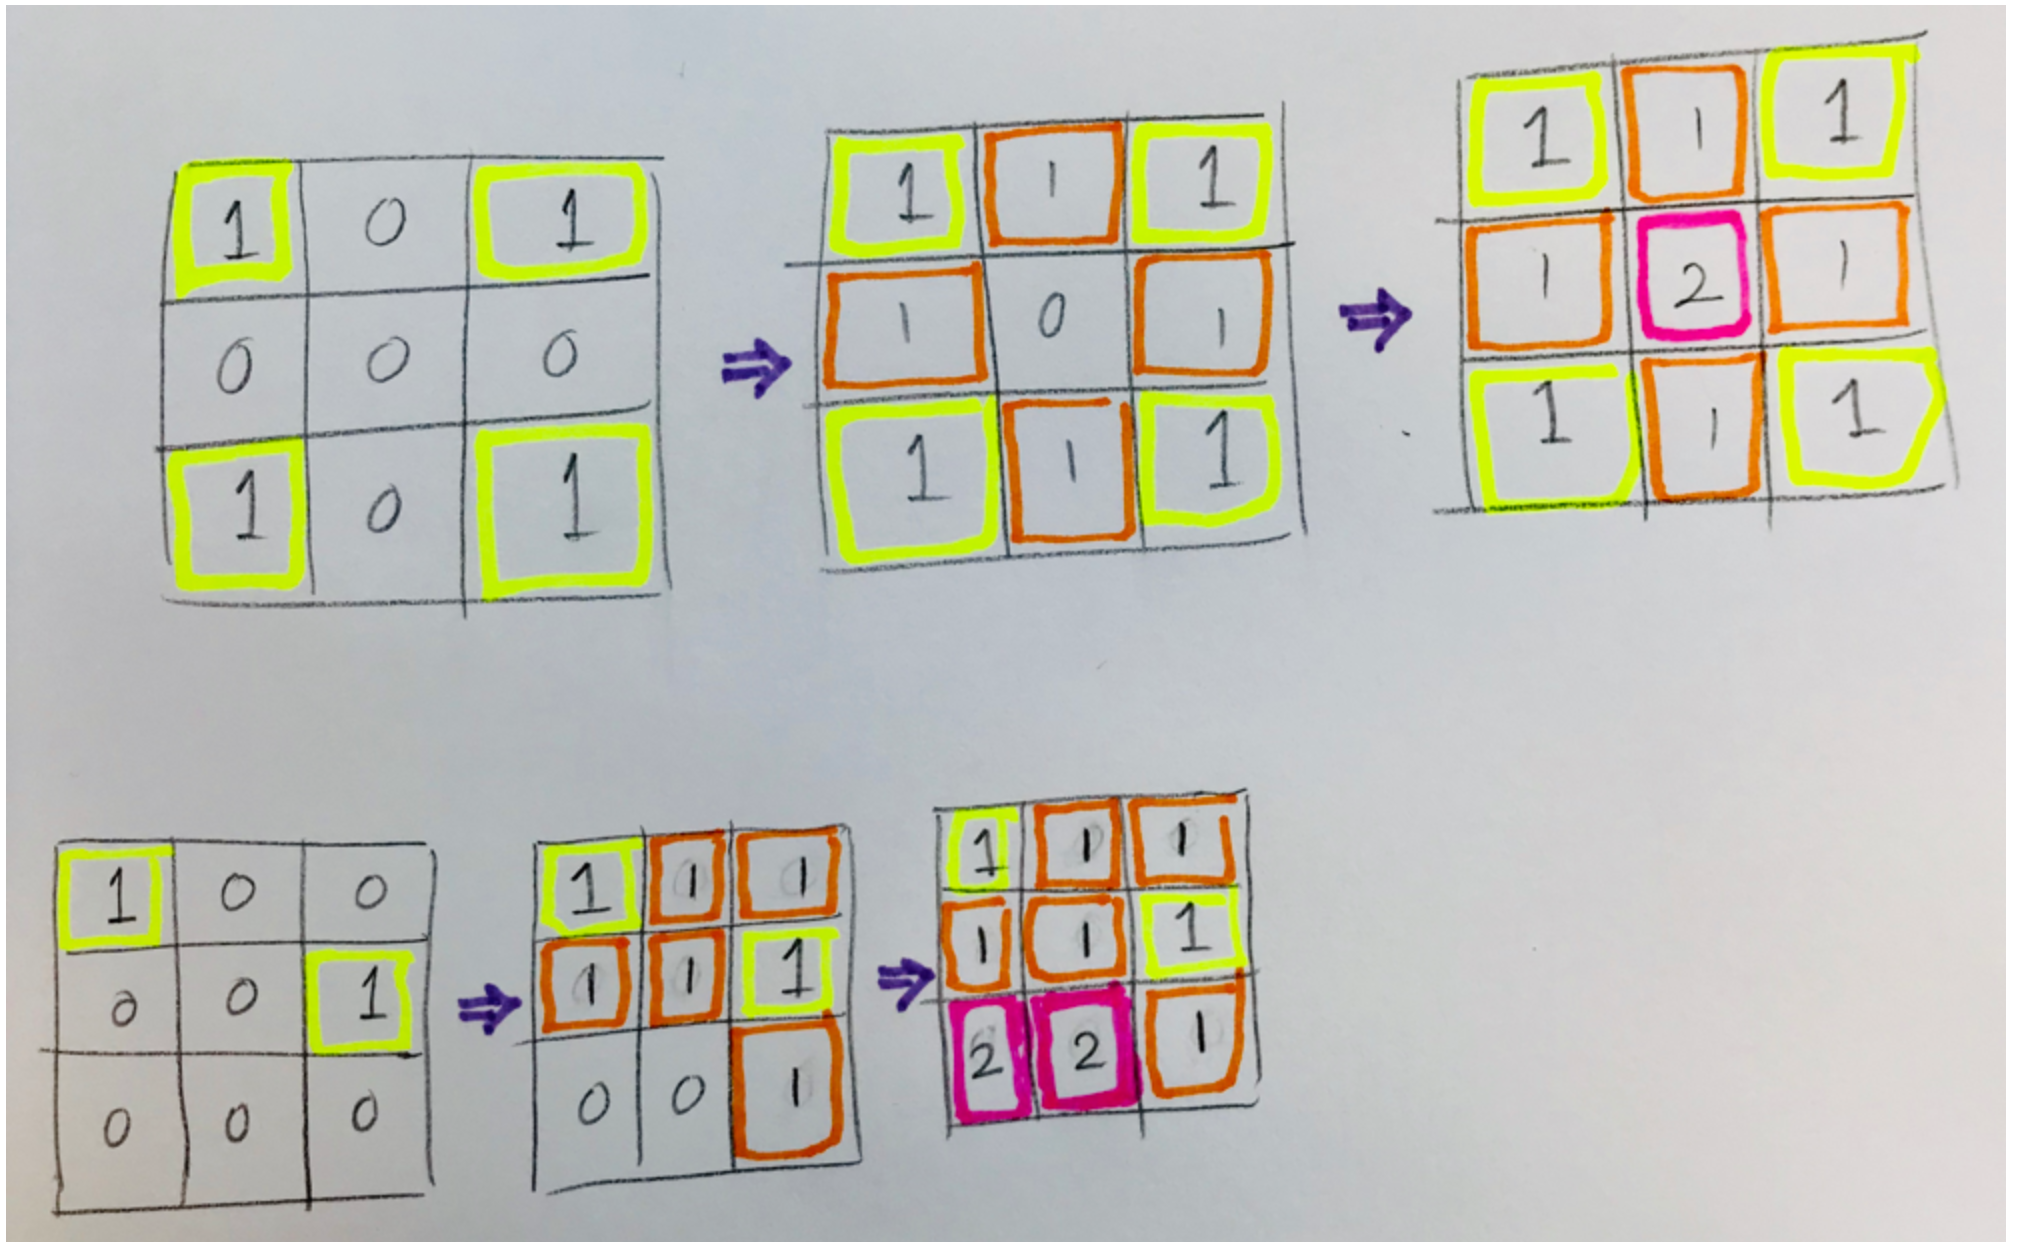 1 0 1
0 0 0
1 0 1
1 1 1
1 0 1
1 1 1
1 1 1
1 2 1
1 1 1
1 0 0
0 0 1
0 0 0
1 1 1
1 1 1
0 0 1
1 1 1
1 1 1
2 2 1